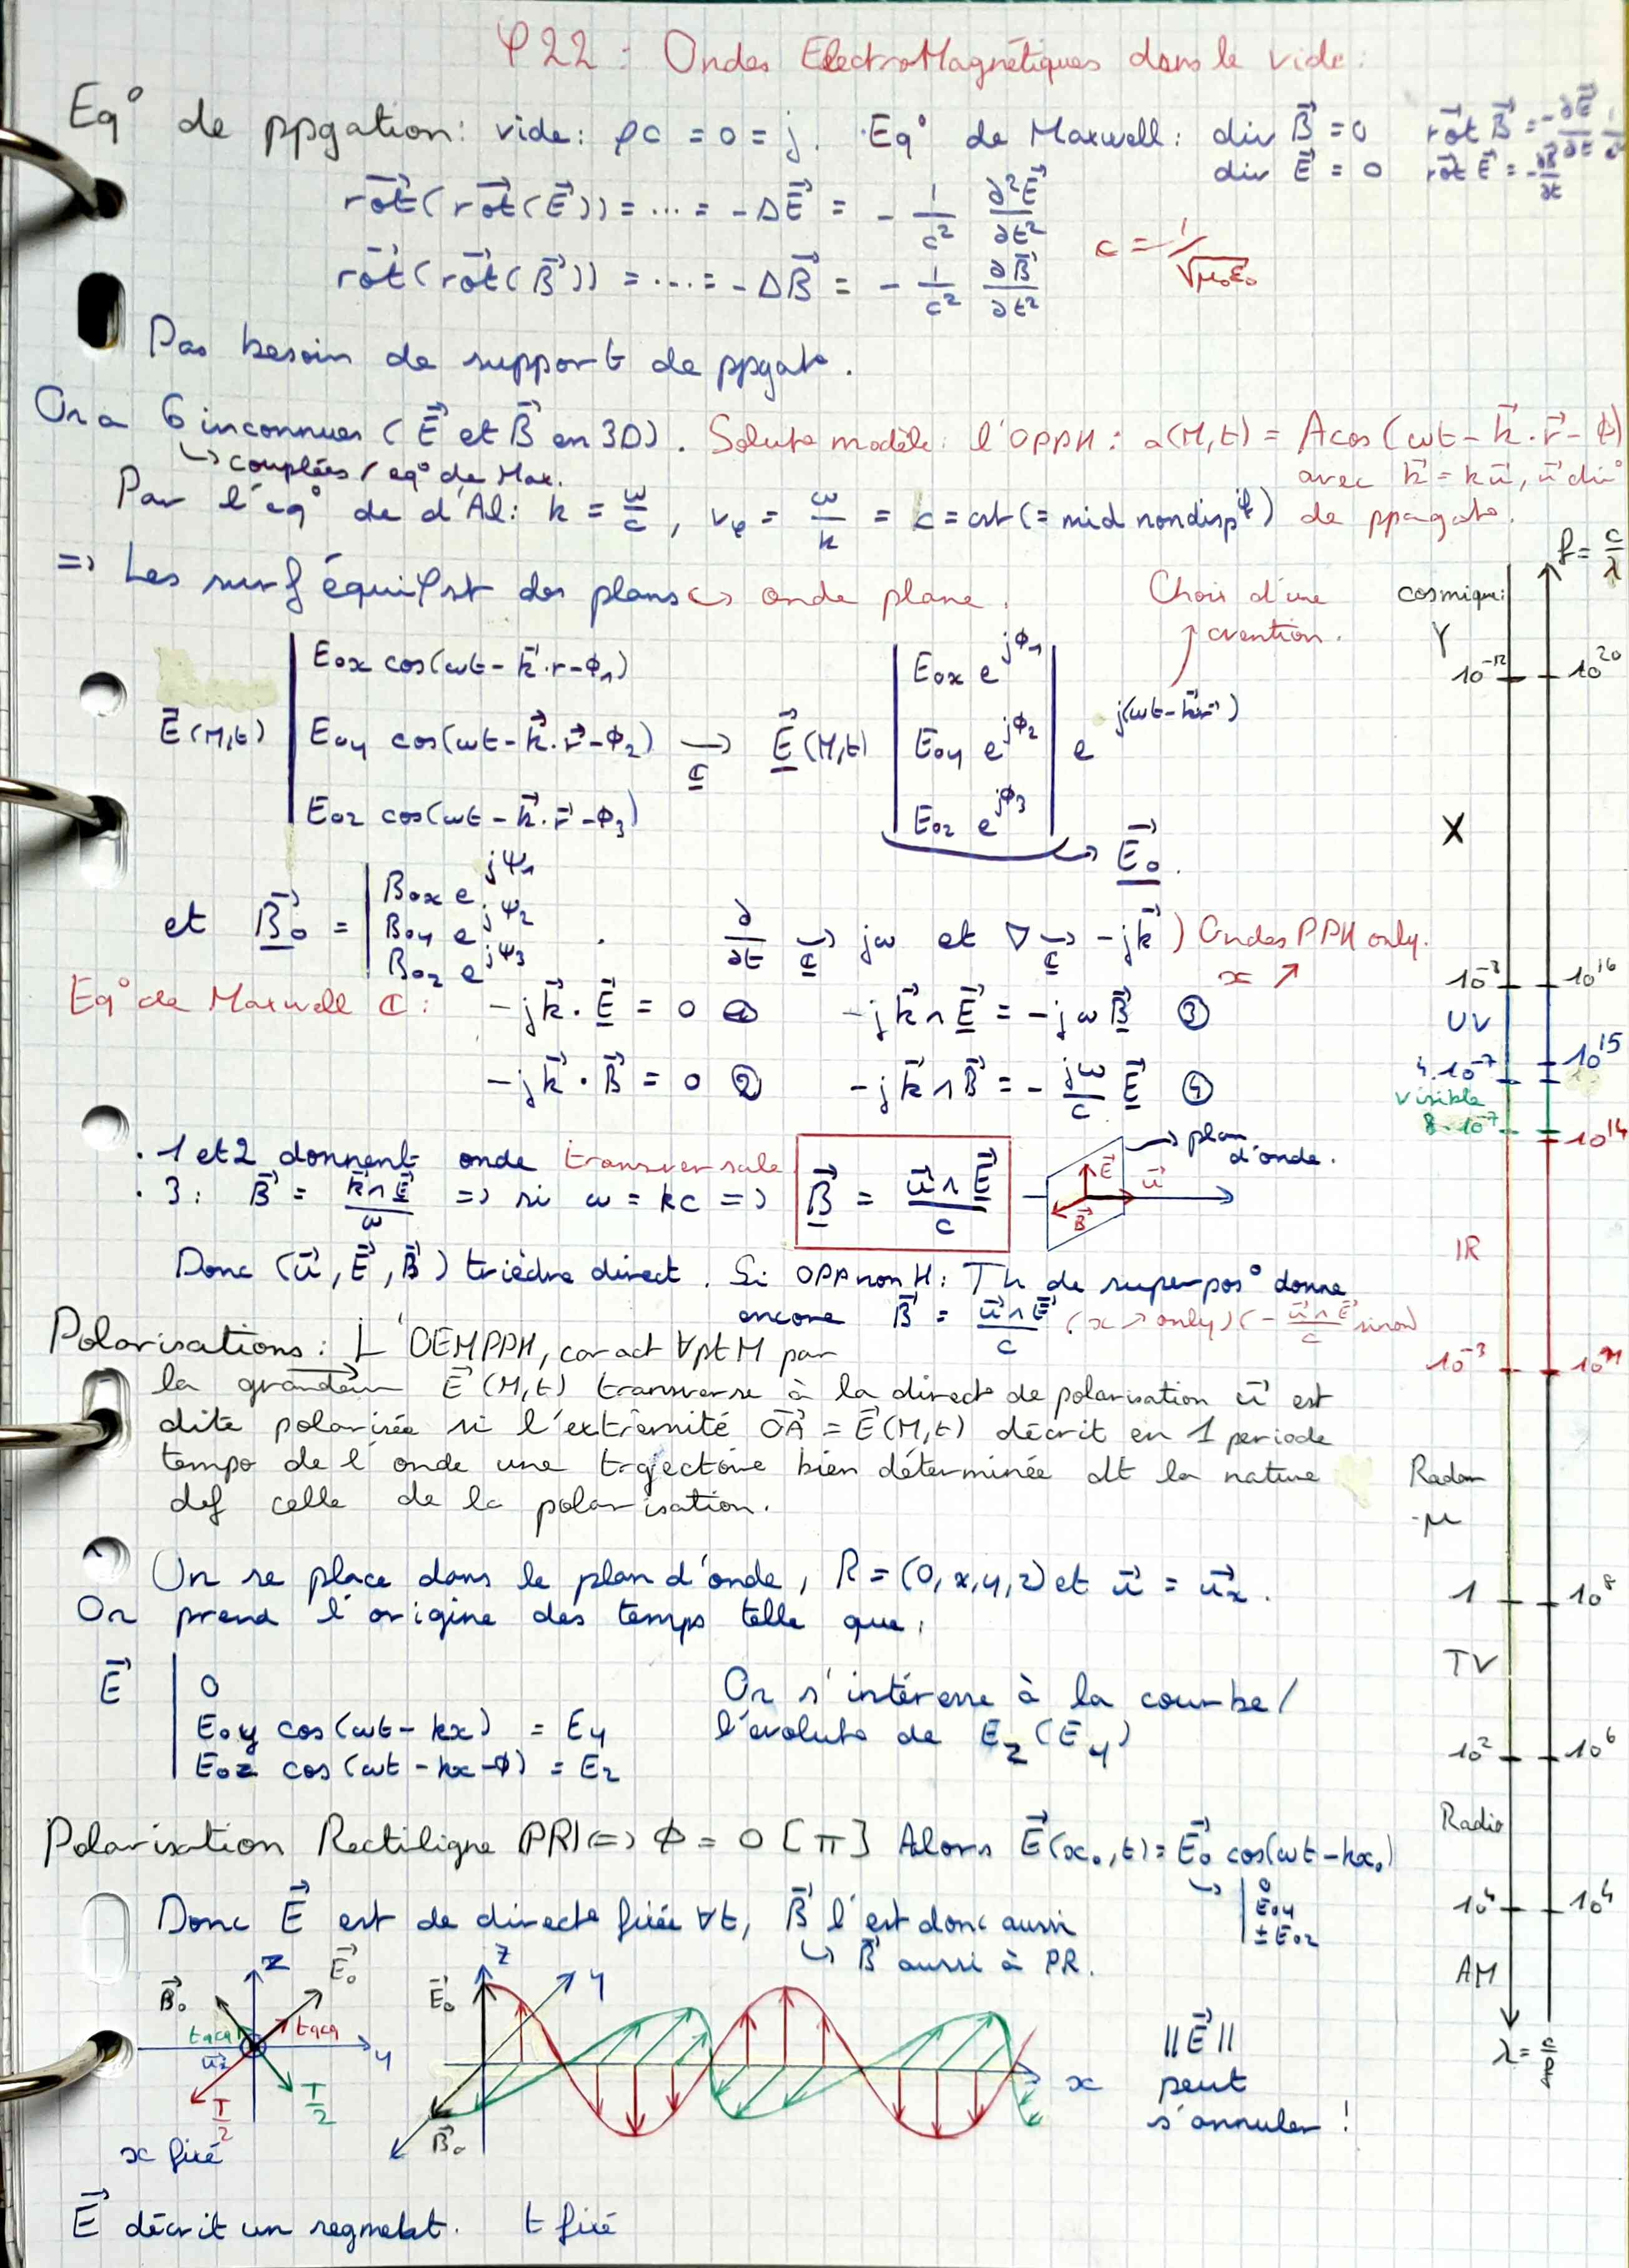 φ22 : Ondes ElectroMagnétiques dans le vide :
Eq° de ppgation : vide : ρc = 0 = j. Eq° de Maxwell : div B⃗ = 0 rot B⃗ = -∂E⃗/∂t 1/c²
div E⃗ = 0 rot E⃗ = -∂B⃗/∂t
rot(rot(E⃗)) = ... = -ΔE⃗ = - 1/c² ∂²E⃗/∂t²
c = 1/√μ₀ε₀
rot(rot(B⃗)) = ... = -ΔB⃗ = - 1/c² ∂B⃗/∂t²
Pas besoin de support de ppgat°.
On a 6 inconnues (E⃗ et B⃗ en 3D). Solut° modèle : l'OPPH : a(M,t) = A cos(ωt - k⃗.r⃗ - ϕ)
↳ couplées / eq° de Max.
avec k⃗ = ku⃗, u⃗ dir°
Par l'eq° de d'Al : k = ω/c, vφ = ω/k = c = cst (= mid nondispif) de ppagat°.
=> Les surf équiφ st des plans ↔ onde plane.
Choix d'une
cvention.
E⃗(M,t) | E0x cos(ωt - k⃗.r - ϕ1)
E0y cos(ωt - k⃗.r⃗ - ϕ2)
E0z cos(ωt - k⃗.r⃗ - ϕ3)
→ ℂ
E⃗(M,t) | E0x e^jϕ1
E0y e^jϕ2
E0z e^jϕ3
| e^j(ωt - k⃗.r⃗)
↳ E⃗0.
et B⃗0 = | B0x e^jψ1
B0y e^jψ2
B0z e^jψ3
. ∂/∂t ↪ℂ jω et ∇ ↪ℂ -jk⃗ ) Ondes PPH only.
x ↗
Eq° de Maxwell ℂ : -jk⃗ . E⃗ = 0 ① -jk⃗ ∧ E⃗ = -jω B⃗ ③
-jk⃗ . B⃗ = 0 ② -jk⃗ ∧ B⃗ = - jω/c E⃗ ④
. 1 et 2 donnent onde transversale
→ plan d'onde.
. 3 : B⃗ = k⃗∧E⃗/ω => si ω = kc => B⃗ = u⃗∧E⃗/c
E⃗ u⃗ B⃗
Donc (u⃗, E⃗, B⃗) trièdre direct. Si OPP non H : Th de superpos° donne
encore B⃗ = u⃗∧E⃗/c (x ↗ only) (- u⃗∧E⃗/c sinon)
Polarisations : L'OEMPPH, caract ∀pt M par
la grandeur E⃗(M,t) transverse à la direct° de polarisation u⃗ est
dite polarisée si l'extrémité OA⃗ = E⃗(M,t) décrit en 1 periode
tempo de l'onde une trajectoire bien déterminée dt la nature
def celle de la polarisation.
On se place dans le plan d'onde, R = (0,x,y,z) et u⃗ = u⃗x.
On prend l'origine des temps telle que :
E⃗ | 0
E0y cos(ωt - kx) = Ey
E0z cos(ωt - kx - ϕ) = Ez
On s'intéresse à la courbe /
l'évolut° de Ez(Ey)
Polarisation Rectiligne (PR) <=> ϕ = 0 [π] Alors E⃗(x0,t) = E⃗0 cos(ωt - kx0)
↳ | 0
E0y
± E0z
Donc E⃗ est de direct° fixée ∀t, B⃗ l'est donc aussi
↳ B⃗ aussi à PR.
z E⃗0 B⃗0 t qcq t qcq u⃗x y T/2 T/2
x fixé
E⃗0 z y x B⃗0
||E⃗||
peut
s'annuler !
E⃗ décrit un segmebt. t fixé
f = c/λ
cosmique :
γ
10^-12 10^20
X
10^-8 10^16
UV
10^15
4.10^-7
visible
8.10^-7
10^14
IR
10^-3 10^11
Radar
-μ
1 10^8
TV
10^2 10^6
Radio
10^4 10^4
AM
λ = c/f